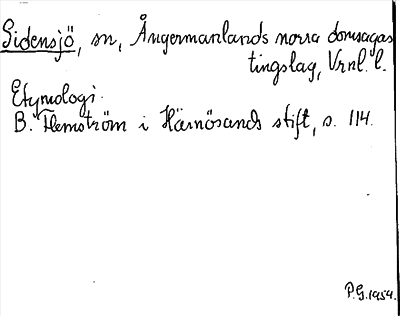 Sidensjö, sn, Ångermanlands norra domsagas
tingslag, Vrnl. l.
Etymologi.
B. Flemström i Härnösands stift, s. 114.
P.G. 1954.